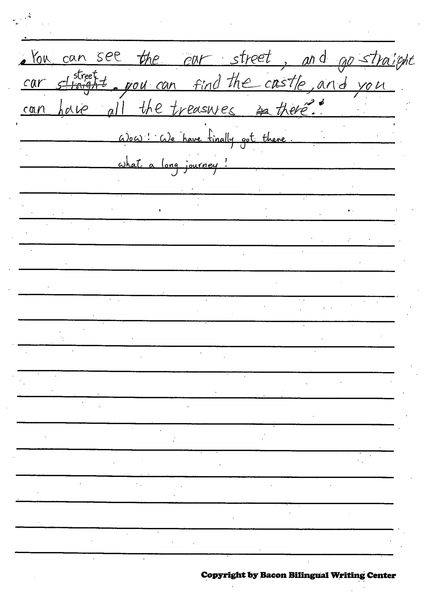 . You can see the car street, and go straight
car street. you can find the castle, and you
can have all the treasures there."
Wow! We have finally got there.
what a long journey!
Copyright by Bacon Bilingual Writing Center